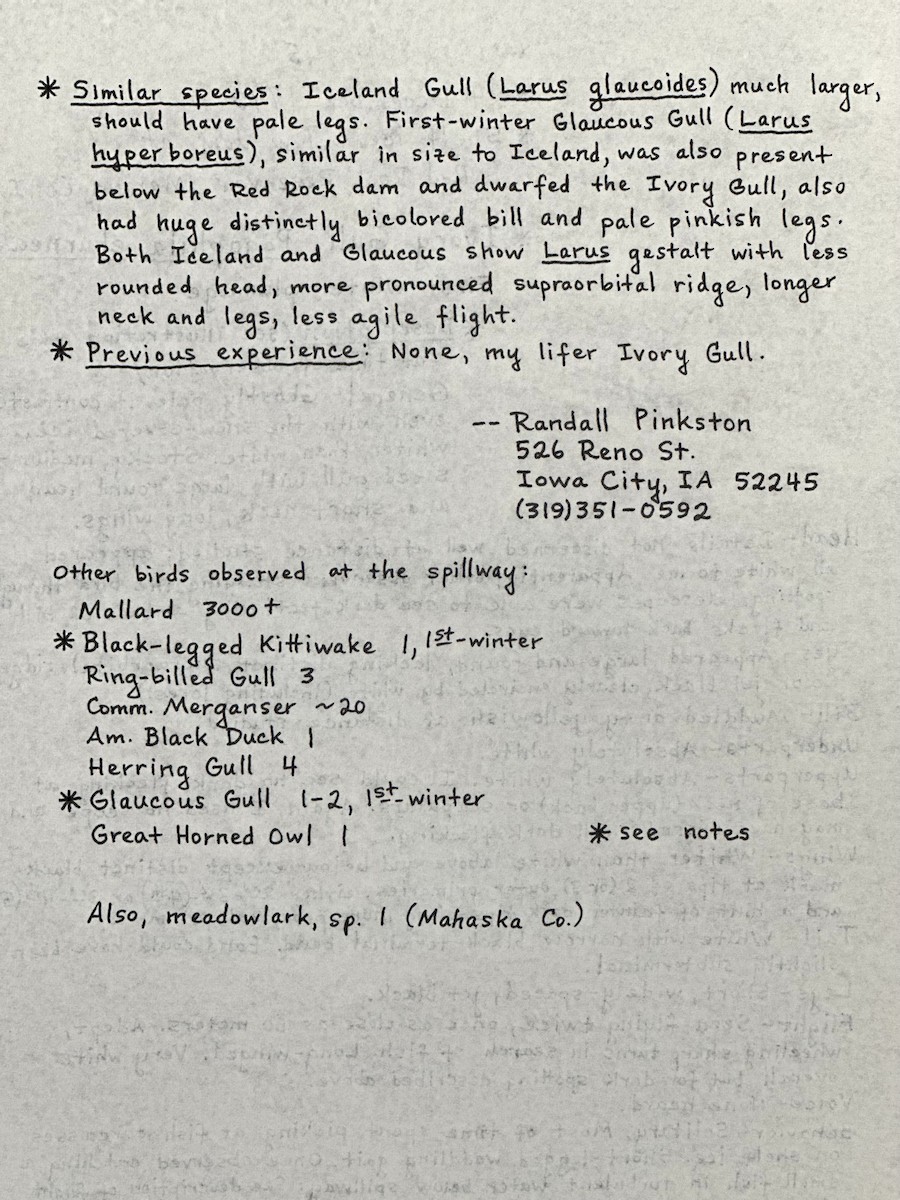 * Similar species: Iceland Gull (Larus glaucoides) much larger,
should have pale legs. First-winter Glaucous Gull (Larus
hyperboreus), similar in size to Iceland, was also present
below the Red Rock dam and dwarfed the Ivory Gull, also
had huge distinctly bicolored bill and pale pinkish legs.
Both Iceland and Glaucous show Larus gestalt with less
rounded head, more pronounced supraorbital ridge, longer
neck and legs, less agile flight.
* Previous experience: None, my lifer Ivory Gull.
-- Randall Pinkston
526 Reno St.
Iowa City, IA 52245
(319)351-0592
Other birds observed at the spillway:
Mallard 3000+
* Black-legged Kittiwake 1, 1st-winter
Ring-billed Gull 3
Comm. Merganser ~20
Am. Black Duck 1
Herring Gull 4
* Glaucous Gull 1-2, 1st-winter
Great Horned Owl 1
* see notes
Also, meadowlark, sp. 1 (Mahaska Co.)